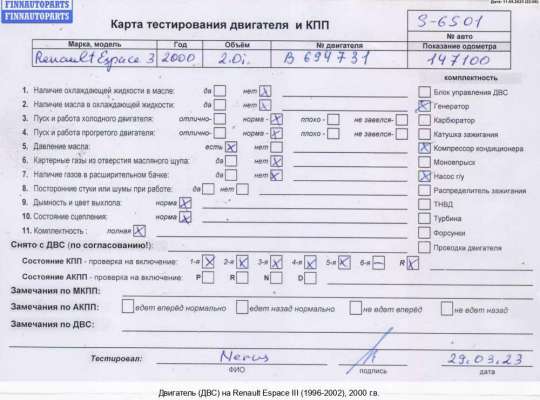 FINNAUTOPARTS
FINNAUTOPARTS
Карта тестирования двигателя и КПП
S-6501
№ авто
Марка, модель Год Объём № двигателя Показание одометра
Renault Espace 3 2000 2.0i B 694731 147100
комплектность
1. Наличие охлаждающей жидкости в масле: да нет X
Блок управления ДВС
2. Наличие масла в охлаждающей жидкости: да нет X
X Генератор
3. Пуск и работа холодного двигателя: отлично- норма - X плохо - не завелся-
Карбюратор
4. Пуск и работа прогретого двигателя: отлично- норма - X плохо - не завелся-
Катушка зажигания
5. Давление масла: есть X нет
X Компрессор кондиционера
6. Картерные газы из отверстия масляного щупа: да нет X
Моновпрыск
7. Наличие газов в расширительном бачке: да нет X
X Насос г/у
8. Посторонние стуки или шумы при работе: да нет
Распределитель зажигания
9. Дымность и цвет выхлопа: норма X
ТНВД
10. Состояние сцепления: норма X
Турбина
11. Комплектность : полная X
Форсунки
Снято с ДВС (по согласованию!):
Проводка двигателя
Состояние КПП - проверка на включение: 1-я X 2-я X 3-я X 4-я X 5-я X 6-я — R X
Состояние АКПП - проверка на включение: P R N D
Замечания по МКПП:
Замечания по АКПП: едет вперёд нормально едет назад нормально не едет вперёд не едет назад
Замечания по ДВС:
Тестировал: Nerus 29.03.23
ФИО подпись дата
Двигатель (ДВС) на Renault Espace III (1996-2002), 2000 г.в.